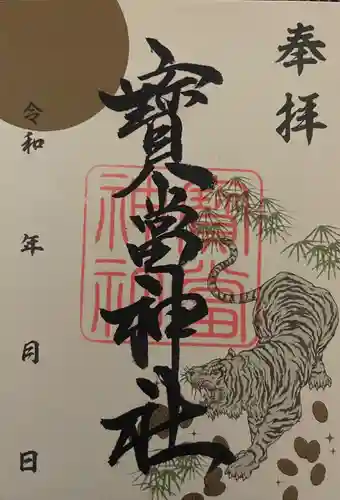 奉拝
寳當神社
寳當
神社
令和 年 月 日